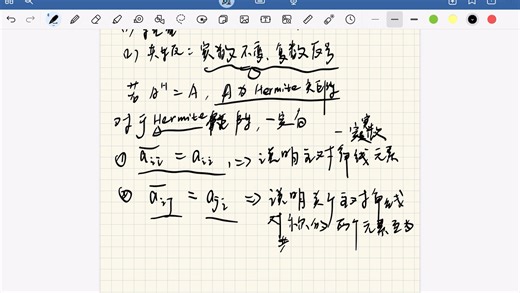 2) 共轭后：实数不变、复数反号
若 A^H = A，A 为 Hermite 矩阵
对于 Hermite 矩阵，一定有
一定实数
① \overline{a_{ii}} = a_{ii}，⇒ 说明主对角线元素
② \overline{a_{ij}} = a_{ji} ⇒ 说明关于主对角线
对称的两个元素互为
共